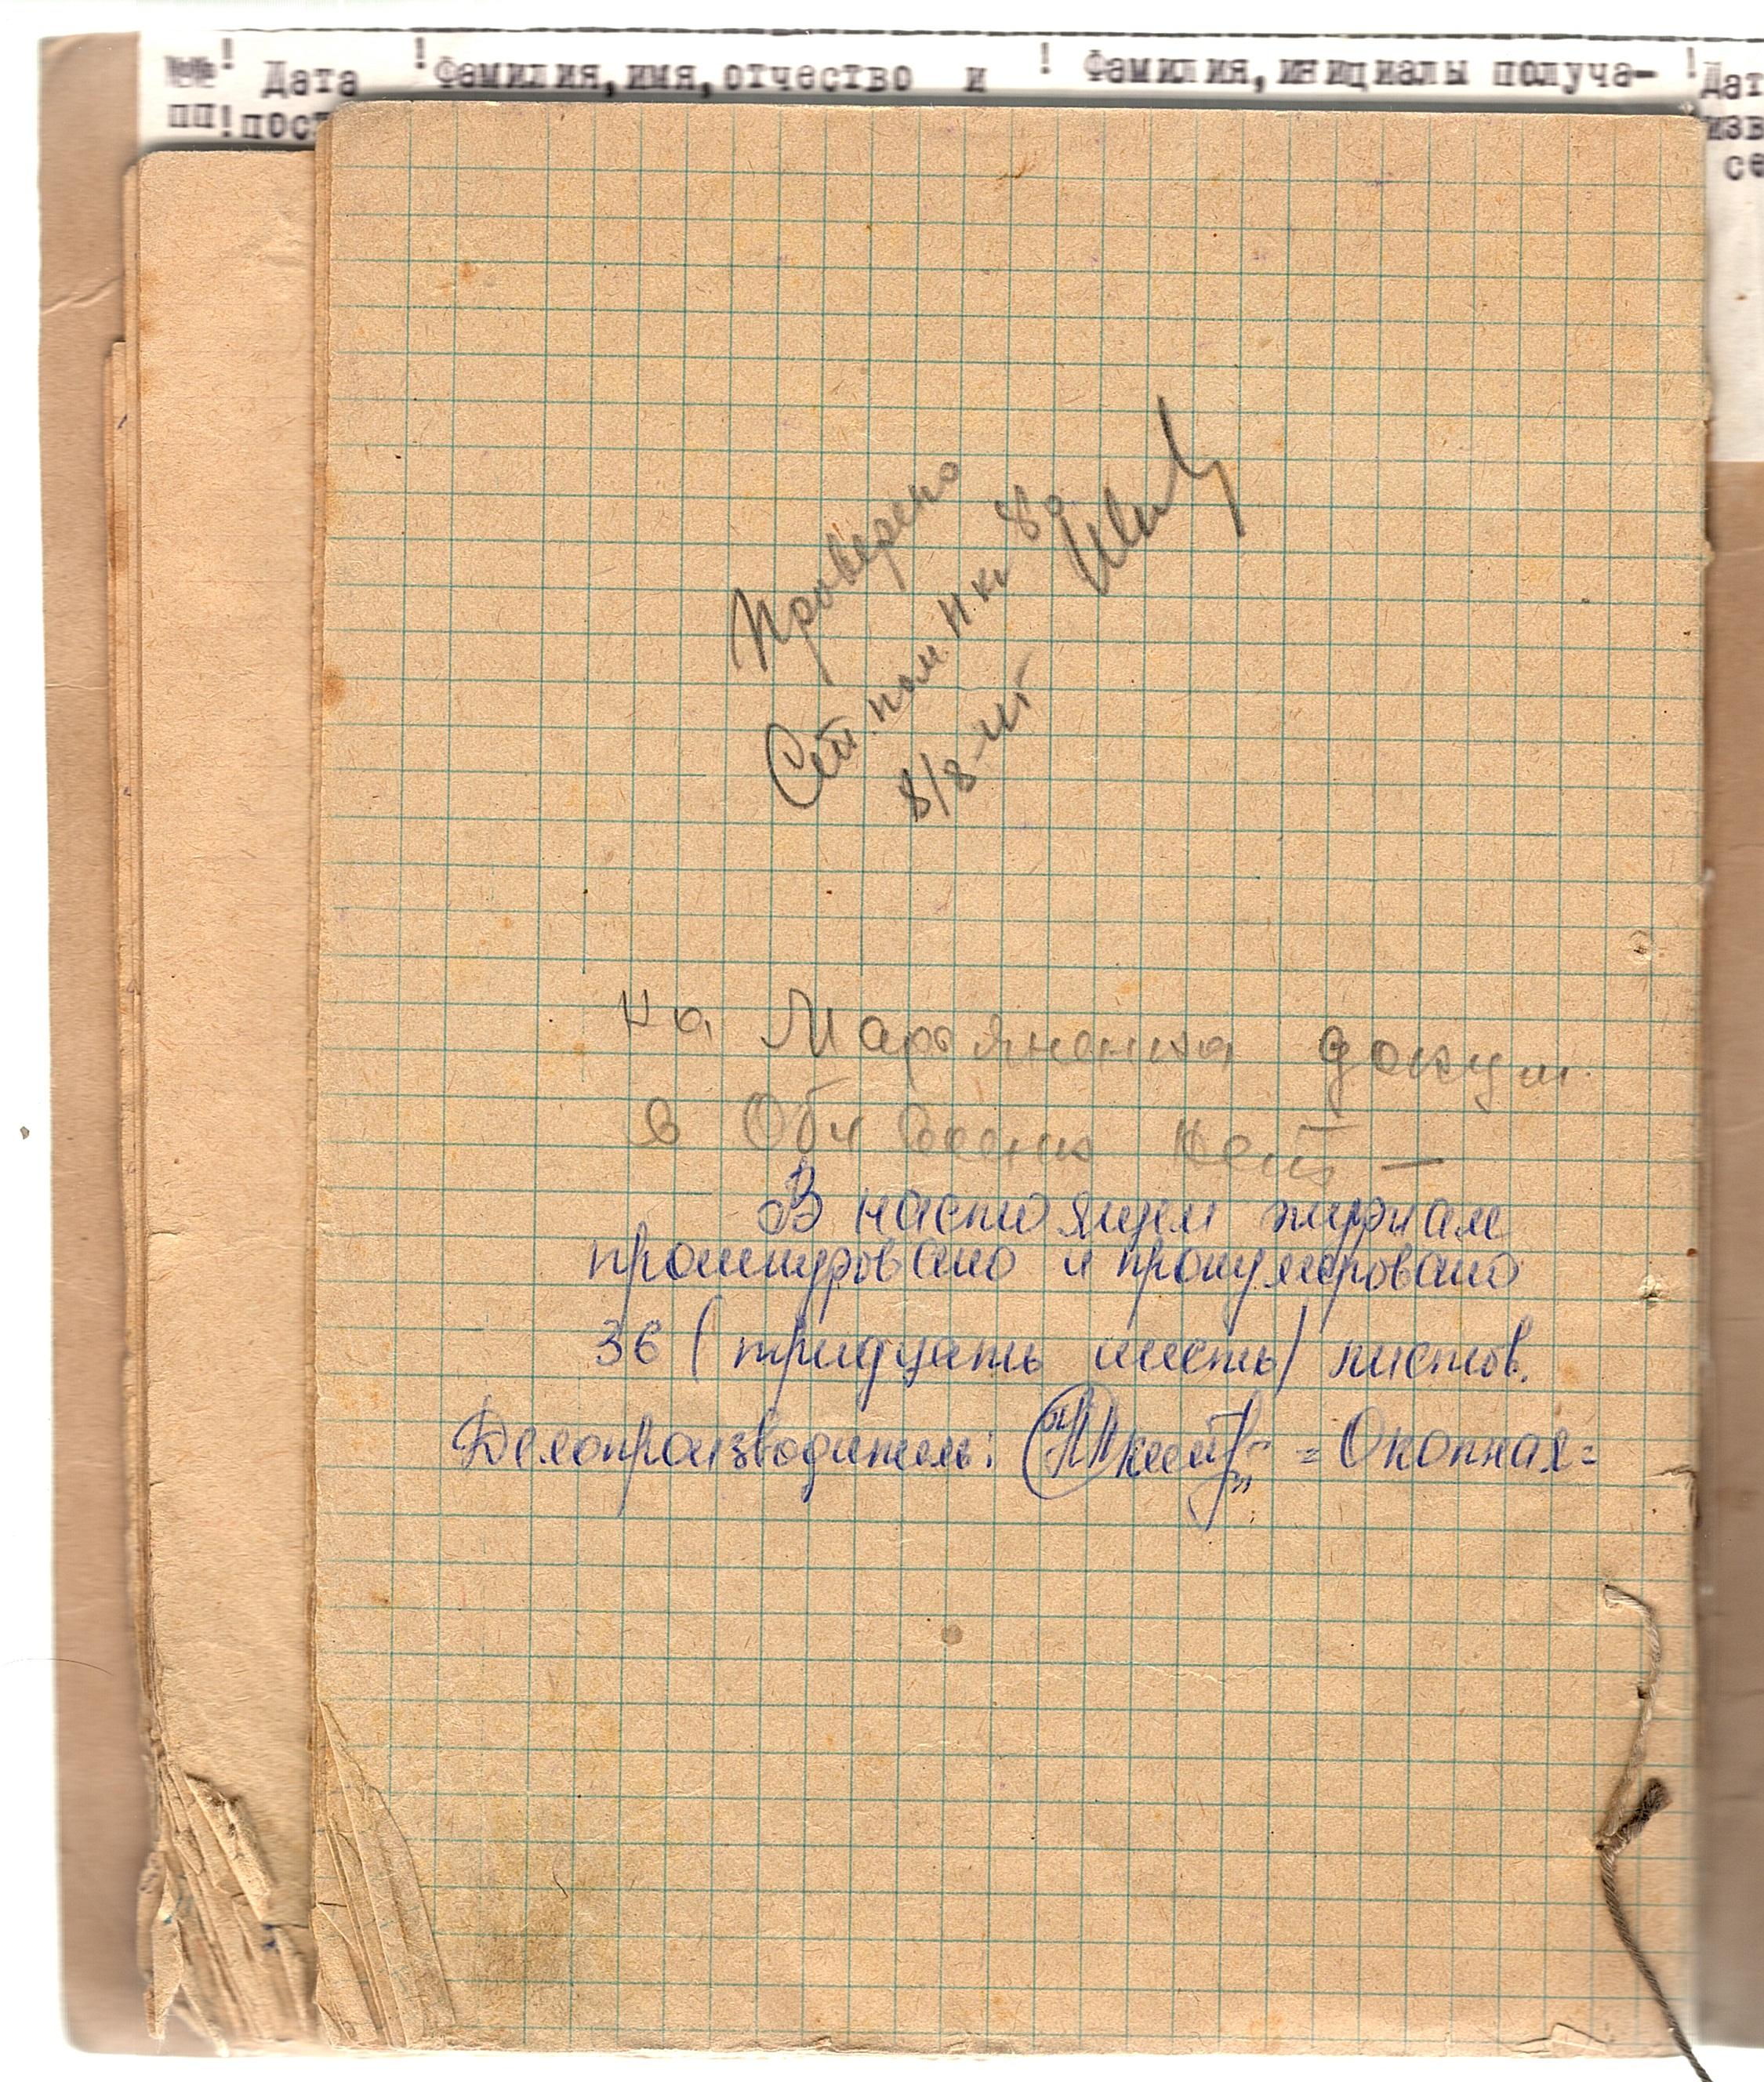 №№ ! Дата ! Фамилия, имя, отчество и ! Фамилия, инициалы получа- ! Дат
пп ! пост изв
се
Проверено
Ст. пом. Нк
8/8
на Марьяненка докум.
в Обл нет —
В настоящем журнале
прошнуровано и пронумеровано
36 (тридцать шесть) листов.
Делопроизводитель: = Окопная =